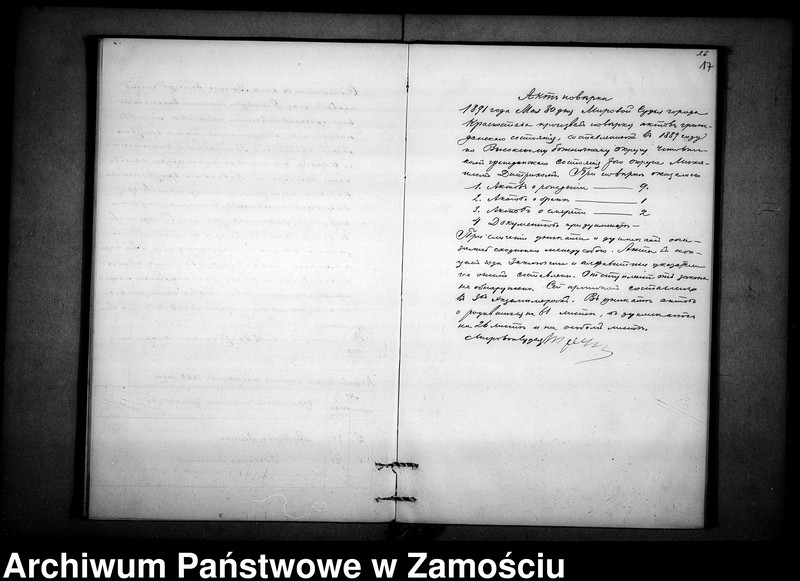 26
17
Актъ повѣрки
1891 года Мая 30 дня Мировой Судья города
Красностава произвелъ повѣрку актовъ граж-
данскаго состоянія, составленныхъ въ 1889 году
по Высокскому божничному округу Чиновни-
комъ гражданскаго состоянія округа Миха-
иломъ Дитрихомъ. При повѣркѣ оказалось
1. Актовъ о рожденіи — 9.
2. Актовъ о бракѣ — 1
3. Актовъ о смерти — 2
4 Документовъ при дупликатѣ —
При сличеніи уникатъ и дупликатъ ока-
зались сходными между собою. Акты въ кон-
цѣ года заключены и алфавитные указатели
къ онымъ составлены. Отступленій отъ закона
не обнаружено. Сей протоколъ составленъ
въ экземплярахъ. Въ уникатѣ актовъ
о родившихся на 61 листѣ, въ дупликатѣ
на 26 листѣ и на особомъ листѣ.
Мировой Судья
Archiwum Państwowe w Zamościu